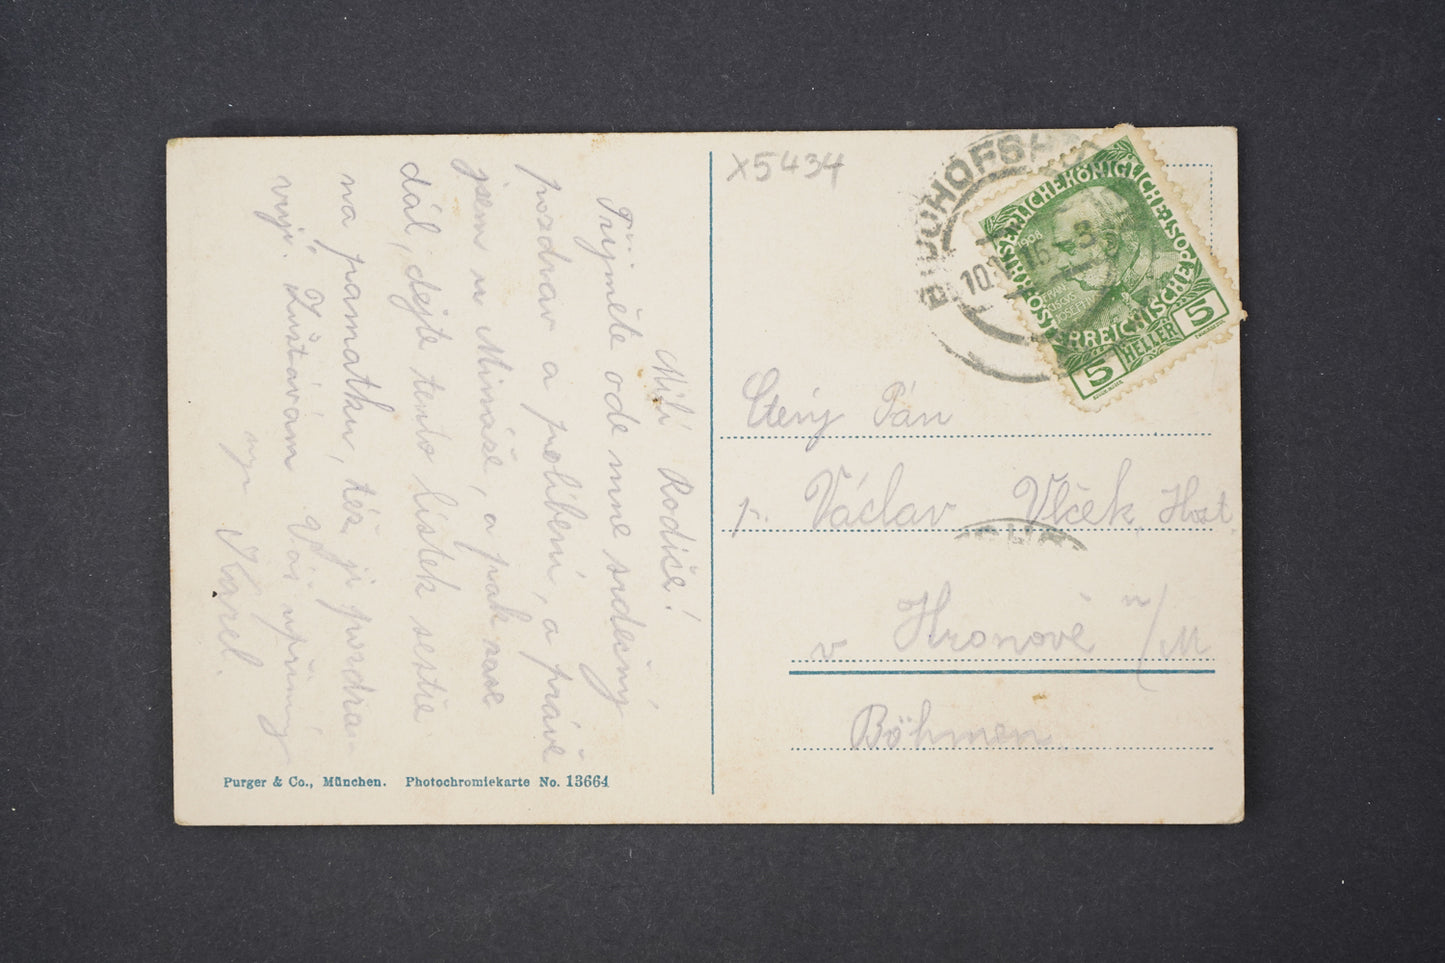 Milí Rodiče!
Přijměte ode mne srdečný
pozdrav a políbení, a právě
jsem u Minváše, a pak zase
dál, dejte tento lístek sestře
na památku, též ji pozdra-
vuji. Zůstávám Váš upřímný
syn Karel.
Purger & Co., München. Photochromiekarte No. 13664
x5434
BISCHOFSHOFEN
10. 16-8
KAISERLICHE KÖNIGLICHE ÖSTERREICHISCHE POST
1908
5 HELLER 5
Ctěný Pán
p. Václav Vlček Host.
v Hronově n/M
Böhmen